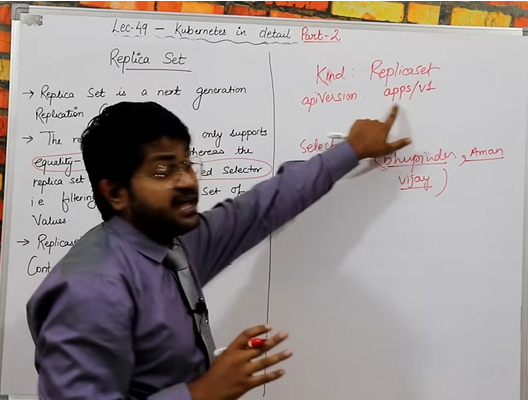 Lec-49 - Kubernetes in detail Part-2
Replica Set
→ Replica Set is a next generation
Replication
→ The only supports
equality- whereas the
Selector
replica set
i.e filtering set of
Values.
→ Replicas
Kind: Replicaset
apiVersion: apps/v1
(bhupinder, Aman
vijay)